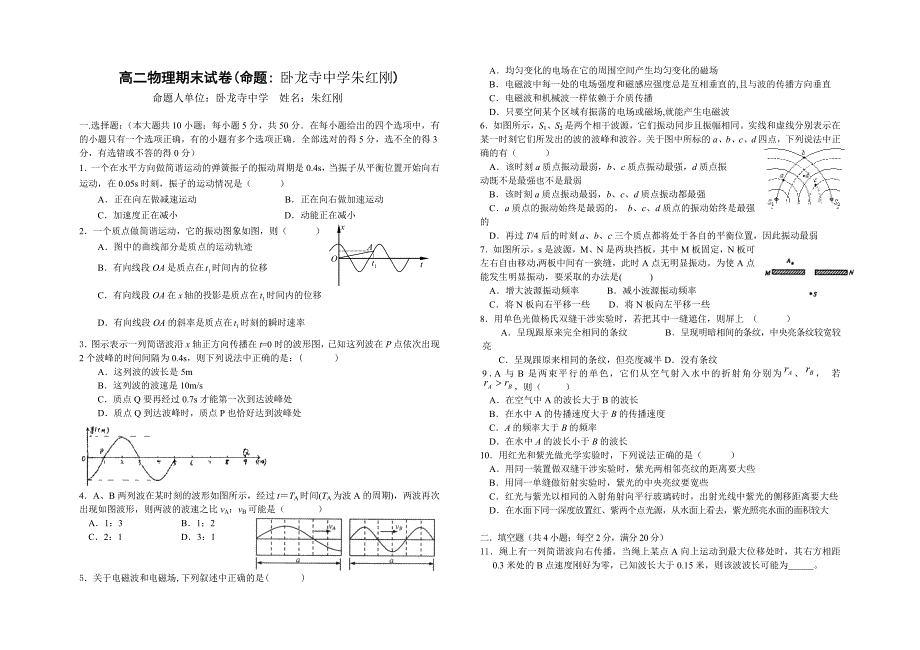 高二物理期末试卷(命题: 卧龙寺中学朱红刚)
命题人单位：卧龙寺中学 姓名：朱红刚
一.选择题:（本大题共 10 小题；每小题 5 分，共 50 分．在每小题给出的四个选项中，有
的小题只有一个选项正确，有的小题有多个选项正确．全部选对的得 5 分，选不全的得 3
分，有选错或不答的得 0 分）
1．一个在水平方向做简谐运动的弹簧振子的振动周期是 0.4s，当振子从平衡位置开始向右
运动，在 0.05s 时刻，振子的运动情况是（ ）
A．正在向左做减速运动 B．正在向右做加速运动
C．加速度正在减小 D．动能正在减小
2．一个质点做简谐运动，它的振动图象如图，则（ ）
A．图中的曲线部分是质点的运动轨迹
B．有向线段 OA 是质点在 t1 时间内的位移
C．有向线段 OA 在 x 轴的投影是质点在 t1 时间内的位移
D．有向线段 OA 的斜率是质点在 t1 时刻的瞬时速率
x
A
O
t1
t
3．图示表示一列简谐波沿 x 轴正方向传播在 t=0 时的波形图，已知这列波在 P 点依次出现
2 个波峰的时间间隔为 0.4s，则下列说法中正确的是:（ ）
A．这列波的波长是 5m
B．这列波的波速是 10m/s
C．质点 Q 要再经过 0.7s 才能第一次到达波峰处
D．质点 Q 到达波峰时，质点 P 也恰好到达波峰处
0 P 1 2 3 4 5 6 7 8
4．A、B 两列波在某时刻的波形如图所示，经过 t＝TA 时间(TA 为波 A 的周期)，两波再次
出现如图波形，则两波的波速之比 vA：vB 可能是（ ）
A．1：3 B．1：2
C．2：1 D．3：1
vA
a
vB
a
5．关于电磁波和电磁场,下列叙述中正确的是( )
A．均匀变化的电场在它的周围空间产生均匀变化的磁场
B．电磁波中每一处的电场强度和磁感应强度总是互相垂直的,且与波的传播方向垂直
C．电磁波和机械波一样依赖于介质传播
D．只要空间某个区域有振荡的电场或磁场,就能产生电磁波
6．如图所示，S1、S2 是两个相干波源，它们振动同步且振幅相同。实线和虚线分别表示在
某一时刻它们所发出的波的波峰和波谷。关于图中所标的 a、b、c、d 四点，下列说法中正
确的有（ ）
A．该时刻 a 质点振动最弱，b、c 质点振动最强，d 质点振
动既不是最强也不是最弱
B．该时刻 a 质点振动最弱，b、c、d 质点振动都最强
C．a 质点的振动始终是最弱的， b、c、d 质点的振动始终是最强
的
D．再过 T/4 后的时刻 a、b、c 三个质点都将处于各自的平衡位置，因此振动最弱
7．如图所示，s 是波源，M、N 是两块挡板，其中 M 板固定，N 板可
左右自由移动,两板中间有一狭缝，此时 A 点无明显振动。为使 A 点
能发生明显振动，要采取的办法是( )
A．增大波源振动频率 B．减小波源振动频率
C．将 N 板向右平移一些 D．将 N 板向左平移一些
A
M N
S
8．用单色光做杨氏双缝干涉实验时，若把其中一缝遮住，则屏上 （ ）
A．呈现跟原来完全相同的条纹 B．呈现明暗相间的条纹，中央亮条纹较宽较
亮
C．呈现跟原来相同的条纹，但亮度减半 D．没有条纹
9．A 与 B 是两束平行的单色，它们从空气射入水中的折射角分别为 rA、rB，若
rA＞rB，则（ ）
A．在空气中 A 的波长大于 B 的波长
B．在水中 A 的传播速度大于 B 的传播速度
C．A 的频率大于 B 的频率
D．在水中 A 的波长小于 B 的波长
10．用红光和紫光做光学实验时，下列说法正确的是（ ）
A．用同一装置做双缝干涉实验时，紫光两相邻亮纹的距离要大些
B．用同一单缝做衍射实验时，紫光的中央亮纹要宽些
C．红光与紫光以相同的入射角射向平行玻璃砖时，出射光线中紫光的侧移距离要大些
D．在水面下同一深度放置红、紫两个点光源，从水面上看去，紫光照亮水面的面积较大
二．填空题（共 4 小题；每空 2 分，满分 20 分）
11．绳上有一列简谐波向右传播，当绳上某点 A 向上运动到最大位移处时，其右方相距
0.3 米处的 B 点速度刚好为零，已知波长大于 0.15 米，则该波波长可能为______。